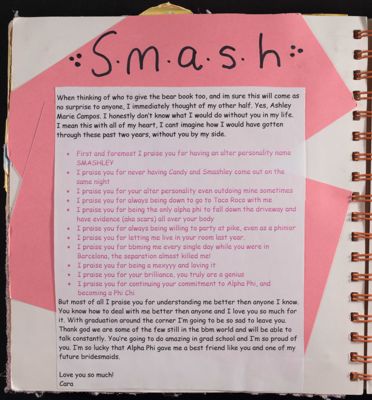 S.m.a.s.h
When thinking of who to give the bear book too, and im sure this will come as
no surprise to anyone, I immediately thought of my other half. Yes, Ashley
Marie Campos. I honestly don't know what I would do without you in my life.
I mean this with all of my heart, I cant imagine how I would have gotten
through these past two years, without you by my side.
• First and foremost I praise you for having an alter personality name
SMASHLEY
• I praise you for never having Candy and Smashley come out on the
same night
• I praise you for your alter personality even outdoing mine sometimes
• I praise you for always being down to go to Taca Roca with me
• I praise you for being the only alpha phi to fall down the driveway and
have evidence (aka scars) all over your body
• I praise you for always being willing to party at pike, even as a phinior
• I praise you for letting me live in your room last year.
• I praise you for bbming me every single day while you were in
Barcelona, the separation almost killed me!
• I praise you for being a mexyyy and loving it
• I praise you for your brilliance, you truly are a genius
• I praise you for continuing your commitment to Alpha Phi, and
becoming a Phi Chi
But most of all I praise you for understanding me better then anyone I know.
You know how to deal with me better then anyone and I love you so much for
it. With graduation around the corner I'm going to be so sad to leave you.
Thank god we are some of the few still in the bbm world and will be able to
talk constantly. You're going to do amazing in grad school and I'm so proud of
you. I'm so lucky that Alpha Phi gave me a best friend like you and one of my
future bridesmaids.
Love you so much!
Cara